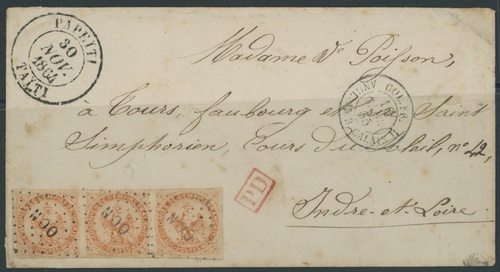 PAPEITI
30
NOV.
1864
TAITI
Madame Ve Poisson,
à Tours, faubourg et rue Saint
Simphorien, Cours du Mail, no 42,
PD
Indre-et-Loire.